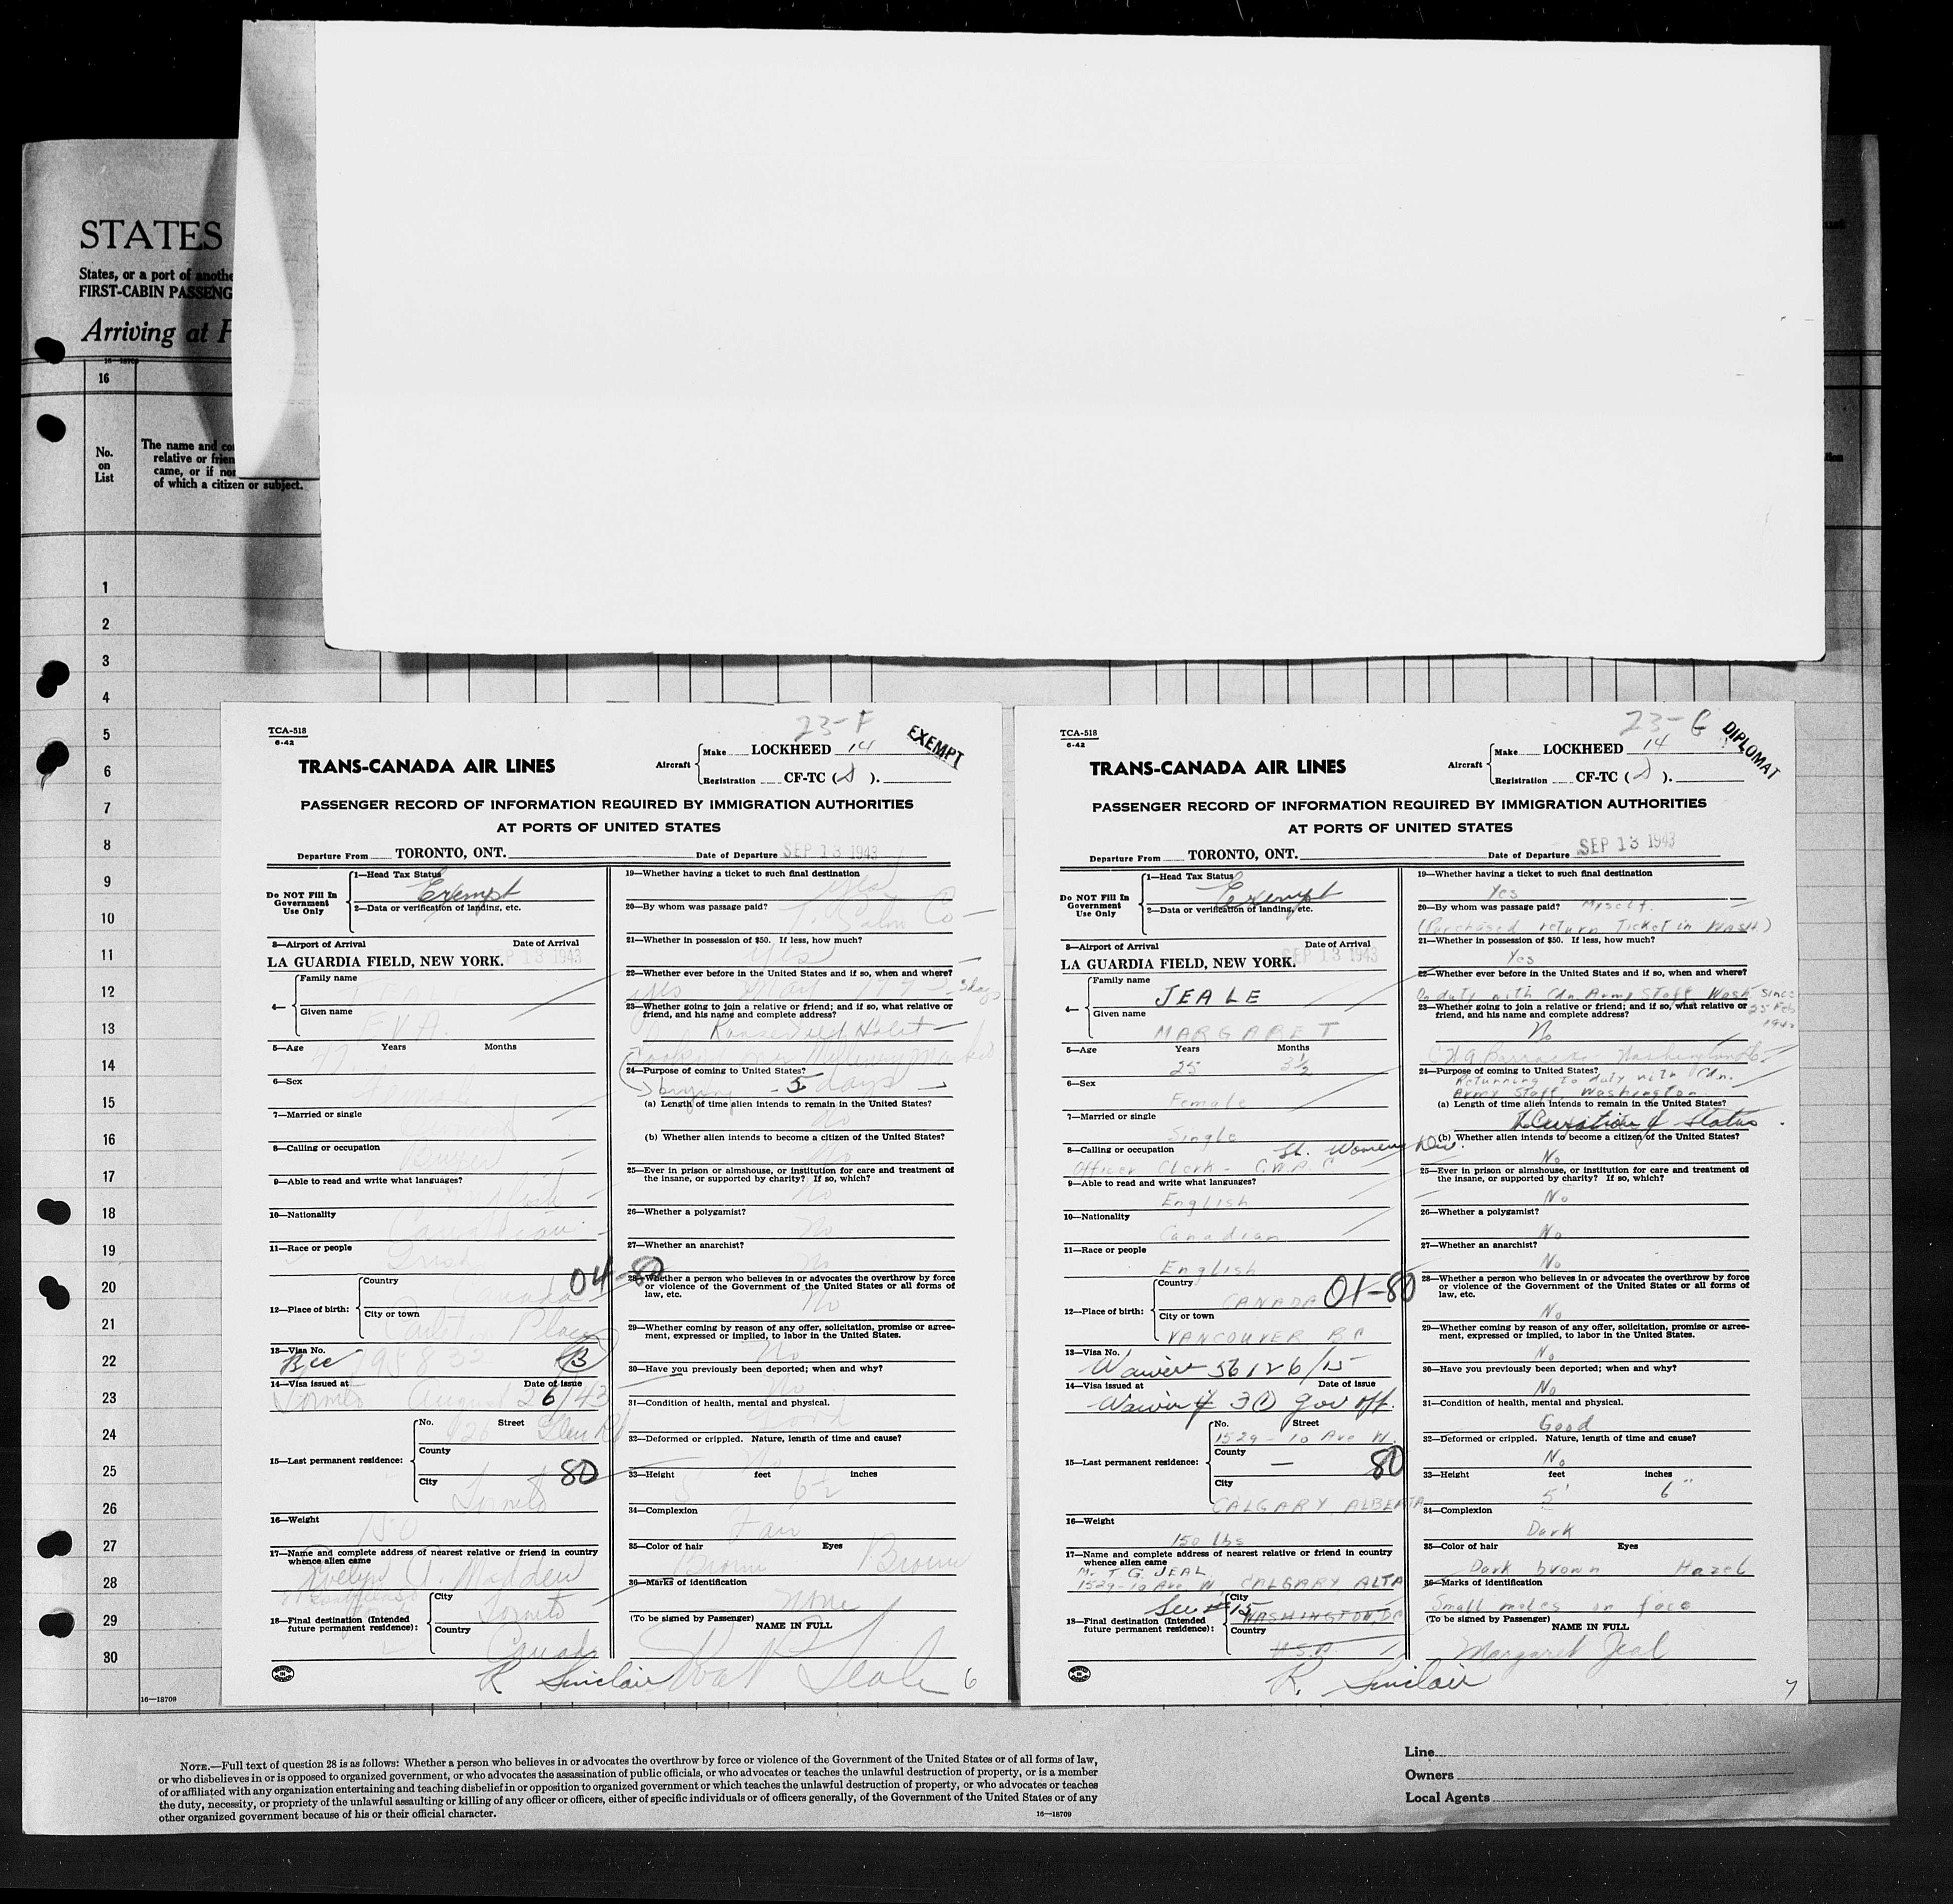 STATES
States, or a port of anothe
FIRST-CABIN PASSENG
Arriving at P
16
No.
on
List
The name and co
relative or frien
came, or if no
of which a citizen or subject.
1
2
3
4
5
6
7
8
9
10
11
12
13
14
15
16
17
18
19
20
21
22
23
24
25
26
27
28
29
30
16—18709
23-F
TCA-518
6-42
EXEMPT
Aircraft
Make LOCKHEED 14
Registration CF-TC ( S ).
TRANS-CANADA AIR LINES
PASSENGER RECORD OF INFORMATION REQUIRED BY IMMIGRATION AUTHORITIES
AT PORTS OF UNITED STATES
Departure From TORONTO, ONT. Date of Departure SEP 13 1943
Do NOT Fill In
Government
Use Only
1—Head Tax Status
Exempt
2—Data or verification of landing, etc.
3—Airport of Arrival Date of Arrival
LA GUARDIA FIELD, NEW YORK. P 13 1943
4—
Family name
Given name
EVA
5—Age Years Months
6—Sex
Female
7—Married or single
8—Calling or occupation
Buyer
9—Able to read and write what languages?
English
10—Nationality
Canadian
11—Race or people
Irish
04-80
12—Place of birth:
Country
Canada
City or town
Place
13—Visa No.
795832 B
14—Visa issued at Date of issue
Toronto August 26/43
15—Last permanent residence:
No. Street
926 Glen Rd
County
City
80
Toronto
16—Weight
150
17—Name and complete address of nearest relative or friend in country
whence alien came
Evelyn A. Madden
18—Final destination (Intended
future permanent residence):
City
Toronto
Country
Canada
R Sinclair
19—Whether having a ticket to such final destination
Yes
20—By whom was passage paid?
Co
21—Whether in possession of $50. If less, how much?
Yes
22—Whether ever before in the United States and if so, when and where?
Yes
23—Whether going to join a relative or friend; and if so, what relative or
friend, and his name and complete address?
24—Purpose of coming to United States?
buying - 5 days
(a) Length of time alien intends to remain in the United States?
No
(b) Whether alien intends to become a citizen of the United States?
No
25—Ever in prison or almshouse, or institution for care and treatment of
the insane, or supported by charity? If so, which?
No
26—Whether a polygamist?
No
27—Whether an anarchist?
No
28—Whether a person who believes in or advocates the overthrow by force
or violence of the Government of the United States or all forms of
law, etc.
No
29—Whether coming by reason of any offer, solicitation, promise or agree-
ment, expressed or implied, to labor in the United States.
No
30—Have you previously been deported; when and why?
No
31—Condition of health, mental and physical.
Good
32—Deformed or crippled. Nature, length of time and cause?
No
33—Height feet inches
5 6½
34—Complexion
Fair
35—Color of hair Eyes
Brown Brown
36—Marks of identification
None
(To be signed by Passenger) NAME IN FULL
6
23-G
TCA-518
6-42
DIPLOMAT
Aircraft
Make LOCKHEED 14
Registration CF-TC ( S ).
TRANS-CANADA AIR LINES
PASSENGER RECORD OF INFORMATION REQUIRED BY IMMIGRATION AUTHORITIES
AT PORTS OF UNITED STATES
Departure From TORONTO, ONT. Date of Departure SEP 13 1943
Do NOT Fill In
Government
Use Only
1—Head Tax Status
Exempt
2—Data or verification of landing, etc.
3—Airport of Arrival Date of Arrival
LA GUARDIA FIELD, NEW YORK. SEP 13 1943
4—
Family name
JEALE
Given name
MARGARET
5—Age Years Months
25 3½
6—Sex
Female
7—Married or single
Single
8—Calling or occupation St. Womens Div.
Officer Clerk - C.W.A.C
9—Able to read and write what languages?
English
10—Nationality
Canadian
11—Race or people
English
12—Place of birth:
Country
CANADA 01-80
City or town
VANCOUVER BC
13—Visa No.
Waiver 56126/15
14—Visa issued at Date of issue
Waiver 3(1) Gov off.
15—Last permanent residence:
No. Street
1529 - 10 Ave W.
County
— 80
City
CALGARY ALBERTA
16—Weight
150 lbs
17—Name and complete address of nearest relative or friend in country
whence alien came
Mr. T G. JEAL
1529-10 Ave. W CALGARY ALTA
18—Final destination (Intended
future permanent residence):
See #15
City
WASHINGTON, DC
Country
U.S.A.
R. Sinclair
19—Whether having a ticket to such final destination
Yes
20—By whom was passage paid? Myself.
(Purchased return Ticket in WASH)
21—Whether in possession of $50. If less, how much?
Yes
22—Whether ever before in the United States and if so, when and where?
On duty with Cdn. Army Staff Wash. since
25 Feb
23—Whether going to join a relative or friend; and if so, what relative or
friend, and his name and complete address?
No
24—Purpose of coming to United States?
Returning to duty with Cdn.
Army Staff, Washington
(a) Length of time alien intends to remain in the United States?
Duration of Status
(b) Whether alien intends to become a citizen of the United States?
No
25—Ever in prison or almshouse, or institution for care and treatment of
the insane, or supported by charity? If so, which?
No
26—Whether a polygamist?
No
27—Whether an anarchist?
No
28—Whether a person who believes in or advocates the overthrow by force
or violence of the Government of the United States or all forms of
law, etc.
No
29—Whether coming by reason of any offer, solicitation, promise or agree-
ment, expressed or implied, to labor in the United States.
No
30—Have you previously been deported; when and why?
No
31—Condition of health, mental and physical.
Good
32—Deformed or crippled. Nature, length of time and cause?
No
33—Height feet inches
5' 6"
34—Complexion
Dark
35—Color of hair Eyes
Dark brown Hazel
36—Marks of identification
Small moles on face
(To be signed by Passenger) NAME IN FULL
Margaret Jeal
7
NOTE.—Full text of question 28 is as follows: Whether a person who believes in or advocates the overthrow by force or violence of the Government of the United States or of all forms of law,
or who disbelieves in or is opposed to organized government, or who advocates the assassination of public officials, or who advocates or teaches the unlawful destruction of property, or is a member
of or affiliated with any organization entertaining and teaching disbelief in or opposition to organized government or which teaches the unlawful destruction of property, or who advocates or teaches
the duty, necessity, or propriety of the unlawful assaulting or killing of any officer or officers, either of specific individuals or of officers generally, of the Government of the United States or of any
other organized government because of his or their official character.
16—18709
Line
Owners
Local Agents